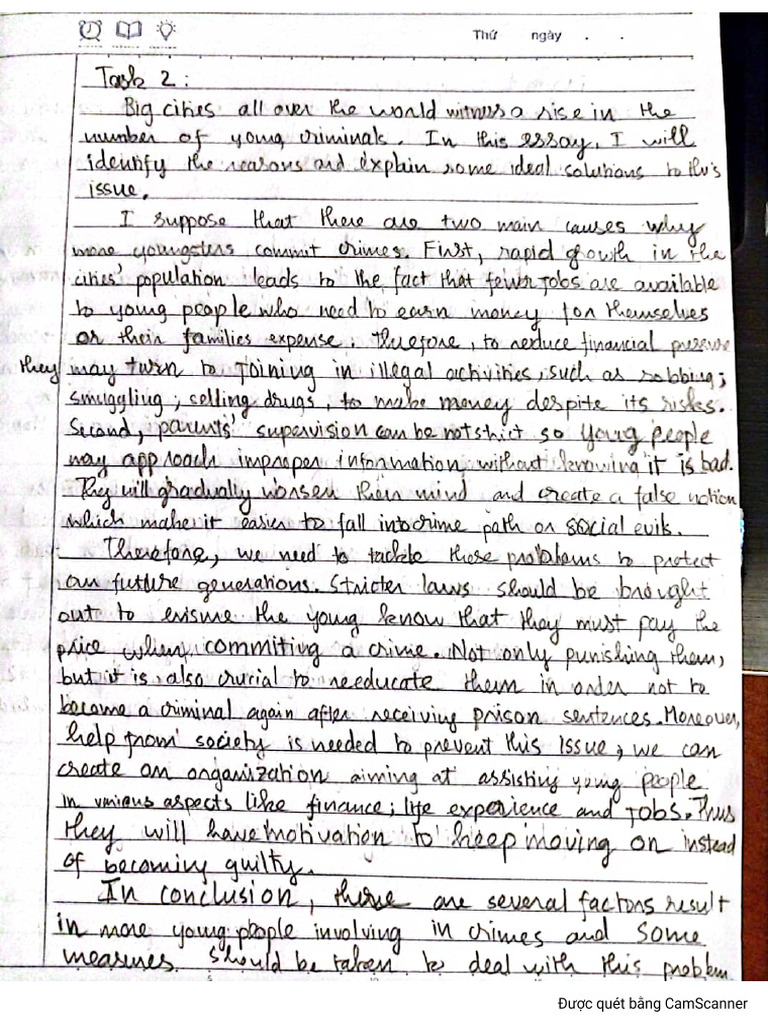 Thứ ngày . .
Task 2 :
Big cities all over the world witness a rise in the
number of young criminals. In this essay, I will
identify the reasons and explain some ideal solutions to this
issue.
I suppose that there are two main causes why
more youngsters commit crimes. First, rapid growth in the
cities' population leads to the fact that fewer jobs are available
to young people who need to earn money for themselves
or their families expense. Therefore, to reduce financial pressure
they may turn to joining in illegal activities, such as robbing;
smuggling; selling drugs, to make money despite its risks.
Second, parents' supervision can be not strict so young people
may approach improper information without knowing it is bad.
They will gradually worsen their mind and create a false notion
which make it easier to fall into crime path or social evils.
Therefore, we need to tackle those problems to protect
our future generations. Stricter laws should be brought
out to ensure the young know that they must pay the
price when commiting a crime. Not only punishing them,
but it is also crucial to reeducate them in order not to
become a criminal again after receiving prison sentences. Moreover,
help from society is needed to prevent this issue; we can
create an organization aiming at assisting young people
in various aspects like finance; life experience and jobs. Thus
they will have motivation to keep moving on instead
of becoming guilty.
In conclusion, there are several factors result
in more young people involving in crimes and some
measures should be taken to deal with this problem
Được quét bằng CamScanner